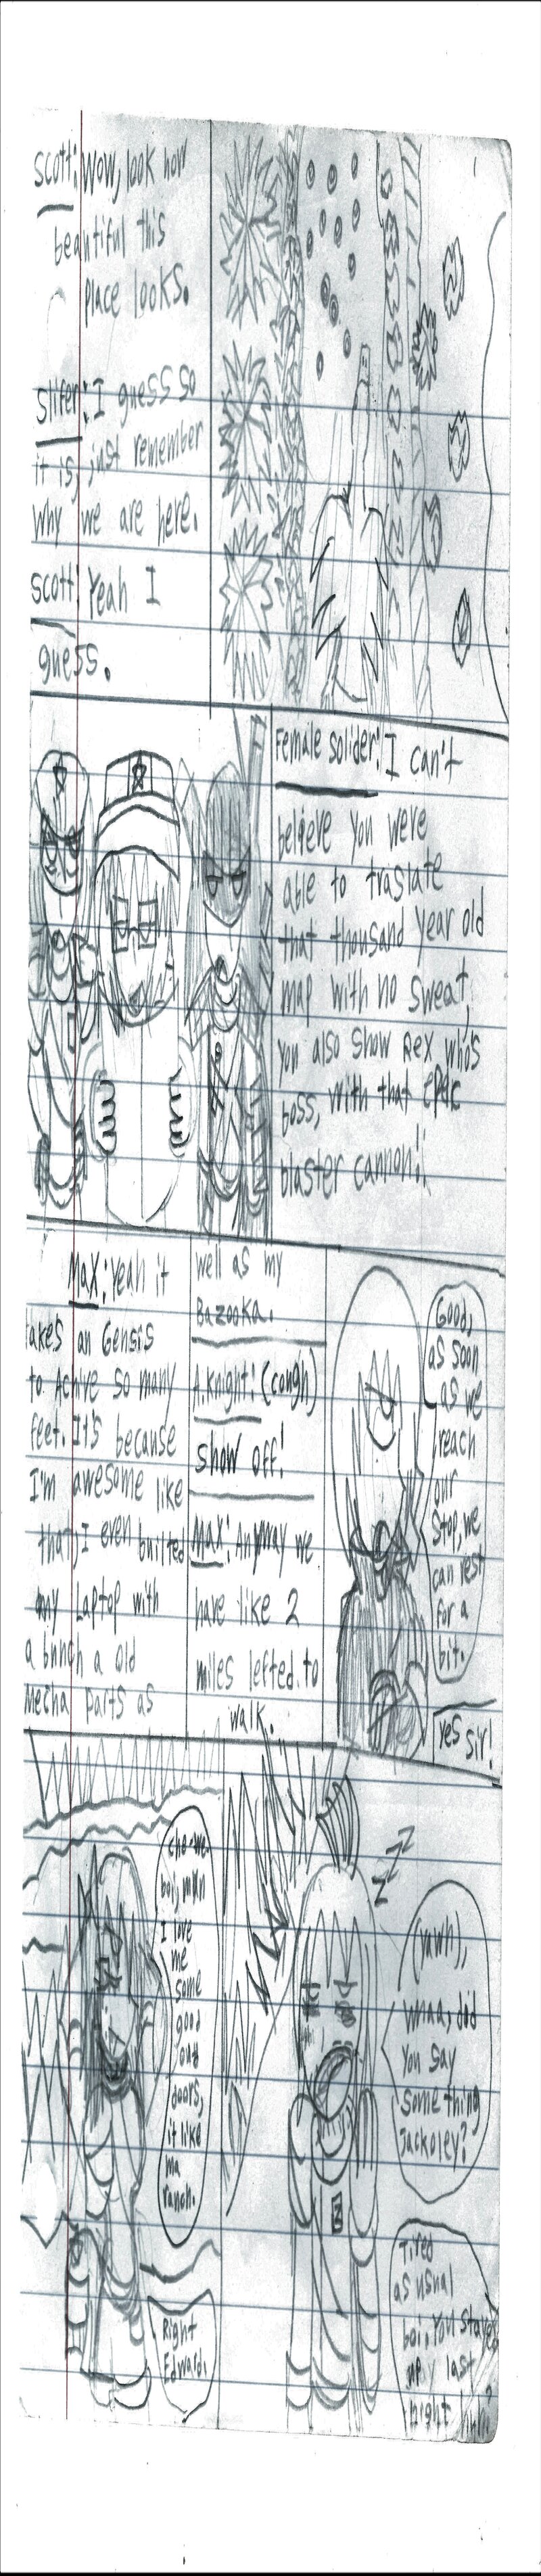 Scott: Wow, look how
beautiful this
place looks.
Slifer: I guess so
it is, just remember
why we are here.
Scott: Yeah I
guess.
Female solider: I can't
believe you were
able to traslate
that thousand year old
map with no sweat,
you also show Rex who's
boss, with that epic
blaster cannon!!
Max: Yeah it
takes an Gensis
to Achive so many
feet. It's because
I'm awesome like
that, I even builted
my laptop with
a bunch a old
mecha parts as
well as my
Bazooka.
A.Knight: (cough)
show off!
Max: Anyway we
have like 2
miles lefted to
walk.
Good,
as soon
as we
reach
our
stop, we
can rest
for a
bit.
Yes sir!
boi, man
I love
me
some
good
out
doors,
it like
ma
ranch.
Right
Edward.
ZZZ
(Yawn),
Whaa, did
you say
something
Jackoley?
Tired
as usual
boi, you stayed
up last
night huh?
Z